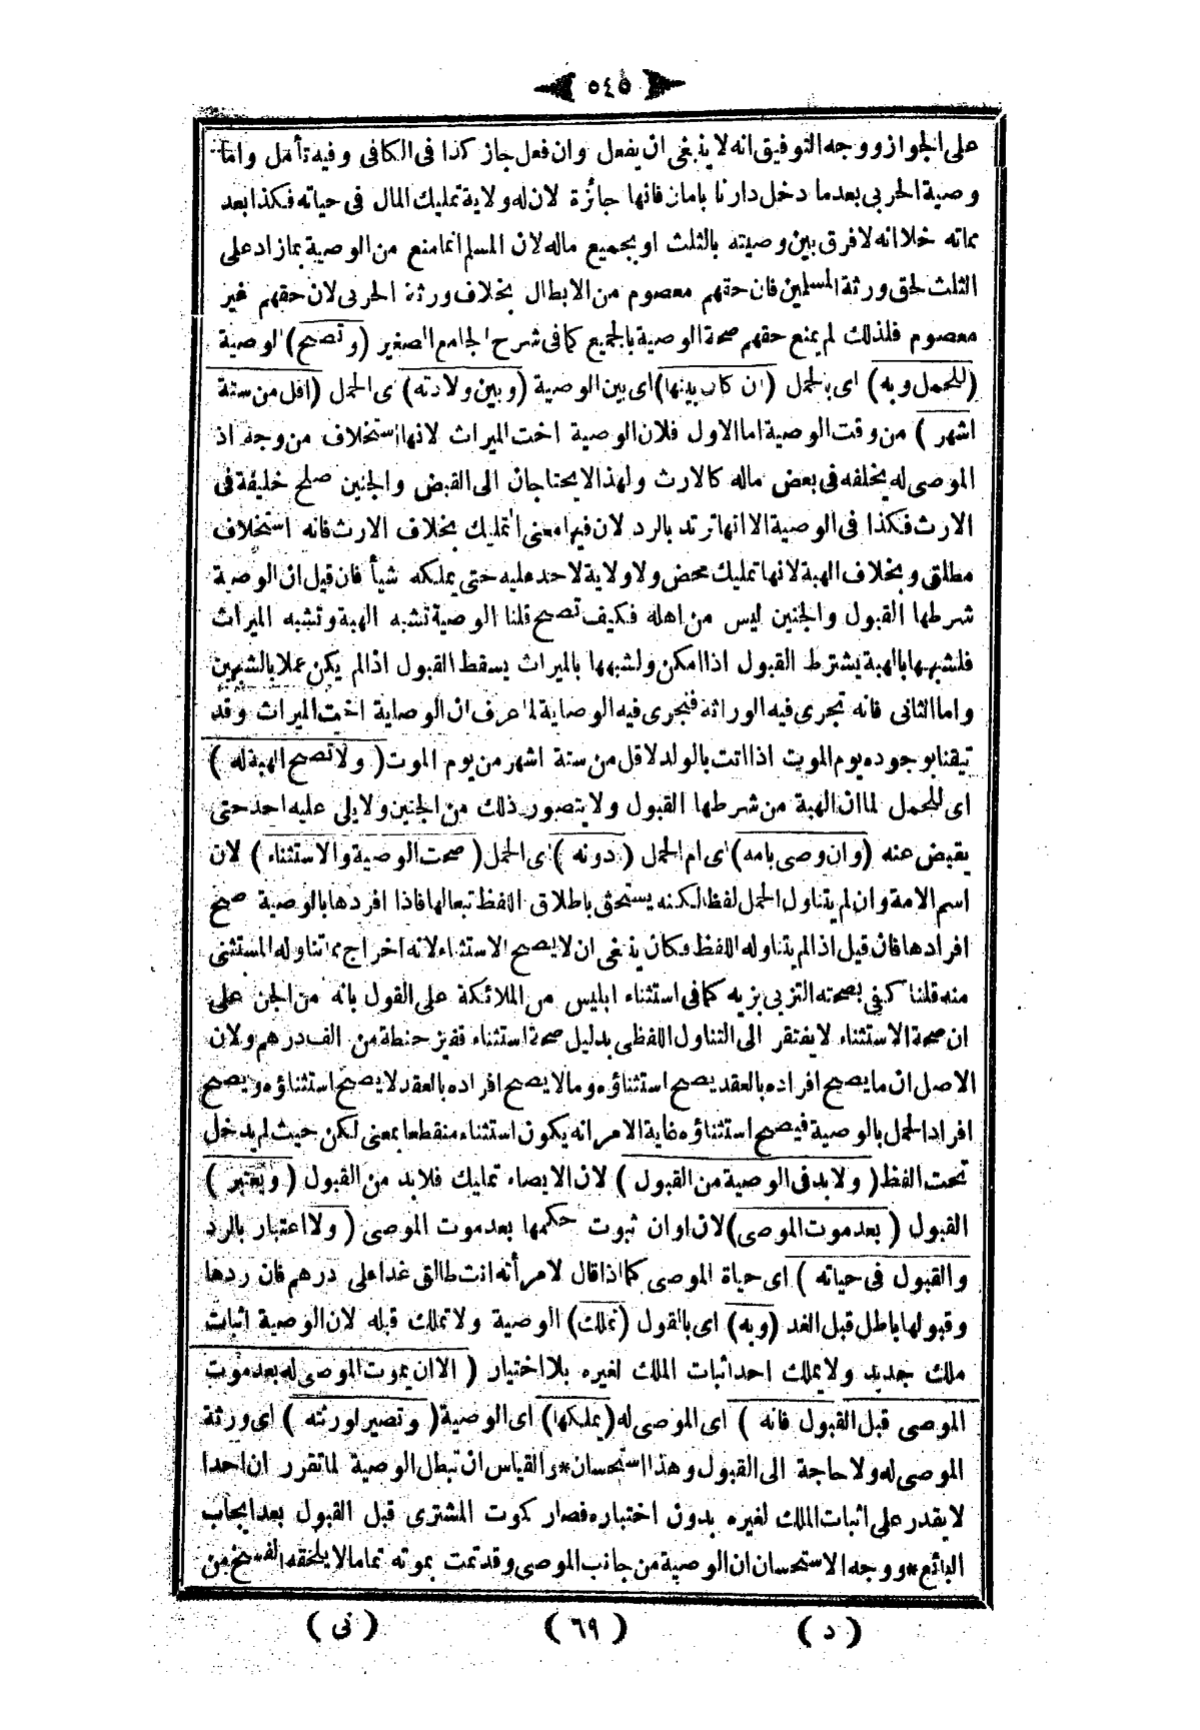 ٥٤٥
على الجواز ووجه التوفيق انه لا ينبغى ان يفعل وان فعل جاز كذا فى الكافى وفيه تأمل واما
وصية الحربى بعدما دخل دارنا بامان فانها جائزة لان له ولاية تمليك المال فى حياته فكذا بعد
مماته خلا انه لا فرق بين وصيته بالثلث او بجميع ماله لان المسلم انما منع من الوصية بما زاد على
الثلث لحق ورثة المسلمين فان حقهم معصوم من الابطال بخلاف ورثة الحربى لان حقهم غير
معصوم فلذلك لم يمنع حقهم صحة الوصية بالجميع كما فى شرح الجامع الصغير (وتصح) الوصية
(للحمل وبه) اى بالحمل (ان كان بينها) اى بين الوصية (وبين ولادته) اى الحمل (اقل من ستة
اشهر) من وقت الوصية اما الاول فلان الوصية اخت الميراث لانها استخلاف من وجه اذ
الموصى له يخلفه فى بعض ماله كالارث ولهذا لا يحتاجان الى القبض والجنين صلح خليفة فى
الارث فكذا فى الوصية الا انها ترتد بالرد لان فيها معنى التمليك بخلاف الارث فانه استخلاف
مطلق وبخلاف الهبة لانها تمليك محض ولا ولاية لاحد عليه حتى يملكه شيأ فان قيل ان الوصية
شرطها القبول والجنين ليس من اهله فكيف تصح قلنا الوصية تشبه الهبة وتشبه الميراث
فلشبهها بالهبة يشترط القبول اذا امكن ولشبهها بالميراث يسقط القبول اذا لم يكن عملا بالشبهين
واما الثانى فانه تجرى فيه الوراثة فتجرى فيه الوصاية لما عرف ان الوصاية اخت الميراث وقد
تيقنا بوجوده يوم الموت اذا اتت بالولد لاقل من ستة اشهر من يوم الموت (ولا تصح الهبة له)
اى للحمل لما ان الهبة من شرطها القبول ولا يتصور ذلك من الجنين ولا يلى عليه احد حتى
يقبض عنه (وان وصى بامه) اى ام الحمل (دونه) اى الحمل (صحت الوصية والاستثناء) لان
اسم الامة وان لم يتناول الحمل لفظا لكنه يستحق باطلاق اللفظ تبعا لها فاذا افردها بالوصية صح
افرادها فان قيل اذا لم يتناوله اللفظ فكان ينبغى ان لا يصح الاستثناء لانه اخراج بما تناوله المستثنى
منه قلنا كفى بصحته التزيى بزيه كما فى استثناء ابليس من الملائكة على القول بانه من الجن على
ان صحة الاستثناء لا يفتقر الى التناول اللفظى بدليل صحة استثناء قفيز حنطة من الف درهم ولان
الاصل ان ما يصح افراده بالعقد يصح استثناؤه وما لا يصح افراده بالعقد لا يصح استثناؤه ويصح
افراد الحمل بالوصية فيصح استثناؤه غاية الامر انه يكون استثناء منقطعا بمعنى لكن حيث لم يدخل
تحت الفظ (ولا بد فى الوصية من القبول) لان الايصاء تمليك فلا بد من القبول (ويعتبر)
القبول (بعد موت الموصى) لان اوان ثبوت حكمها بعد موت الموصى (ولا اعتبار بالرد
والقبول فى حياته) اى حياة الموصى كما اذا قال لامرأته انت طالق غدا على درهم فان ردها
وقبولها باطل قبل الغد (وبه) اى بالقول (تملك) الوصية ولا تملك قبله لان الوصية اثبات
ملك جديد ولا يملك احد اثبات الملك لغيره بلا اختيار (الا ان يموت الموصى له بعد موت
الموصى قبل القبول فانه) اى الموصى له (يملكها) اى الوصية (وتصير لورثته) اى ورثة
الموصى له ولا حاجة الى القبول وهذا استحسان * والقياس ان تبطل الوصية لما تقرر ان احدا
لا يقدر على اثبات الملك لغيره بدون اختباره فصار كموت المشترى قبل القبول بعد ايجاب
البائع * ووجه الاستحسان ان الوصية من جانب الموصى وقد تمت بموته تماما لا يلحقه الفسخ من
(د) (٦٩) (نى)